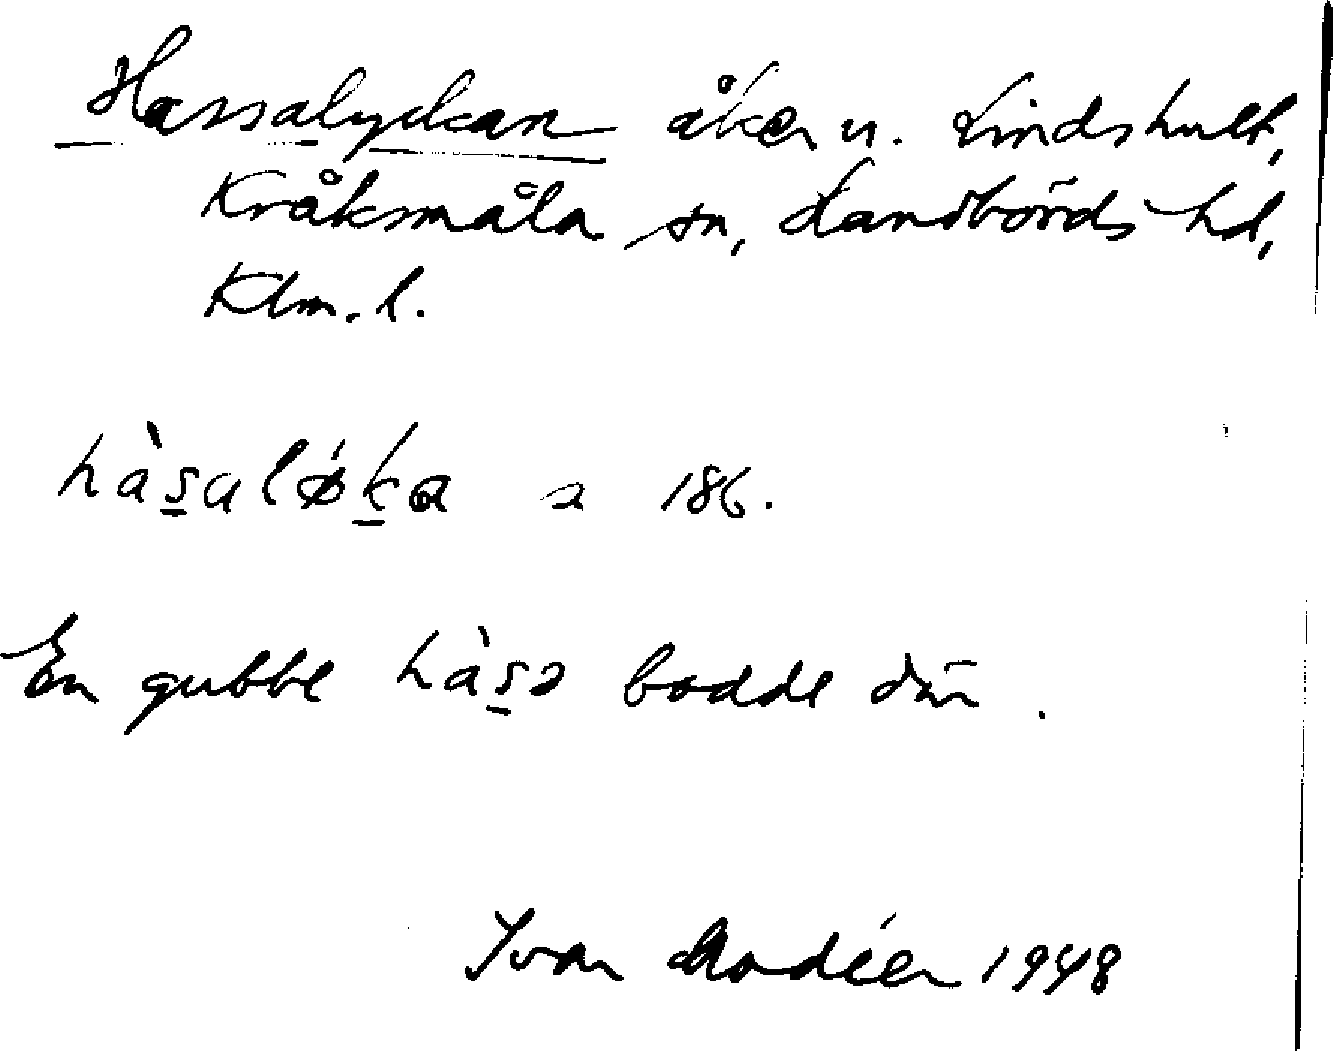 Hassalyckan åker u. Lindshult,
Kråksmåla sn, Handbörds hd,
Klm. l.
hàs̲alǿk̲a 2 186.
En gubbe hàs̲ə bodde där.
Ivar Modéer 1948